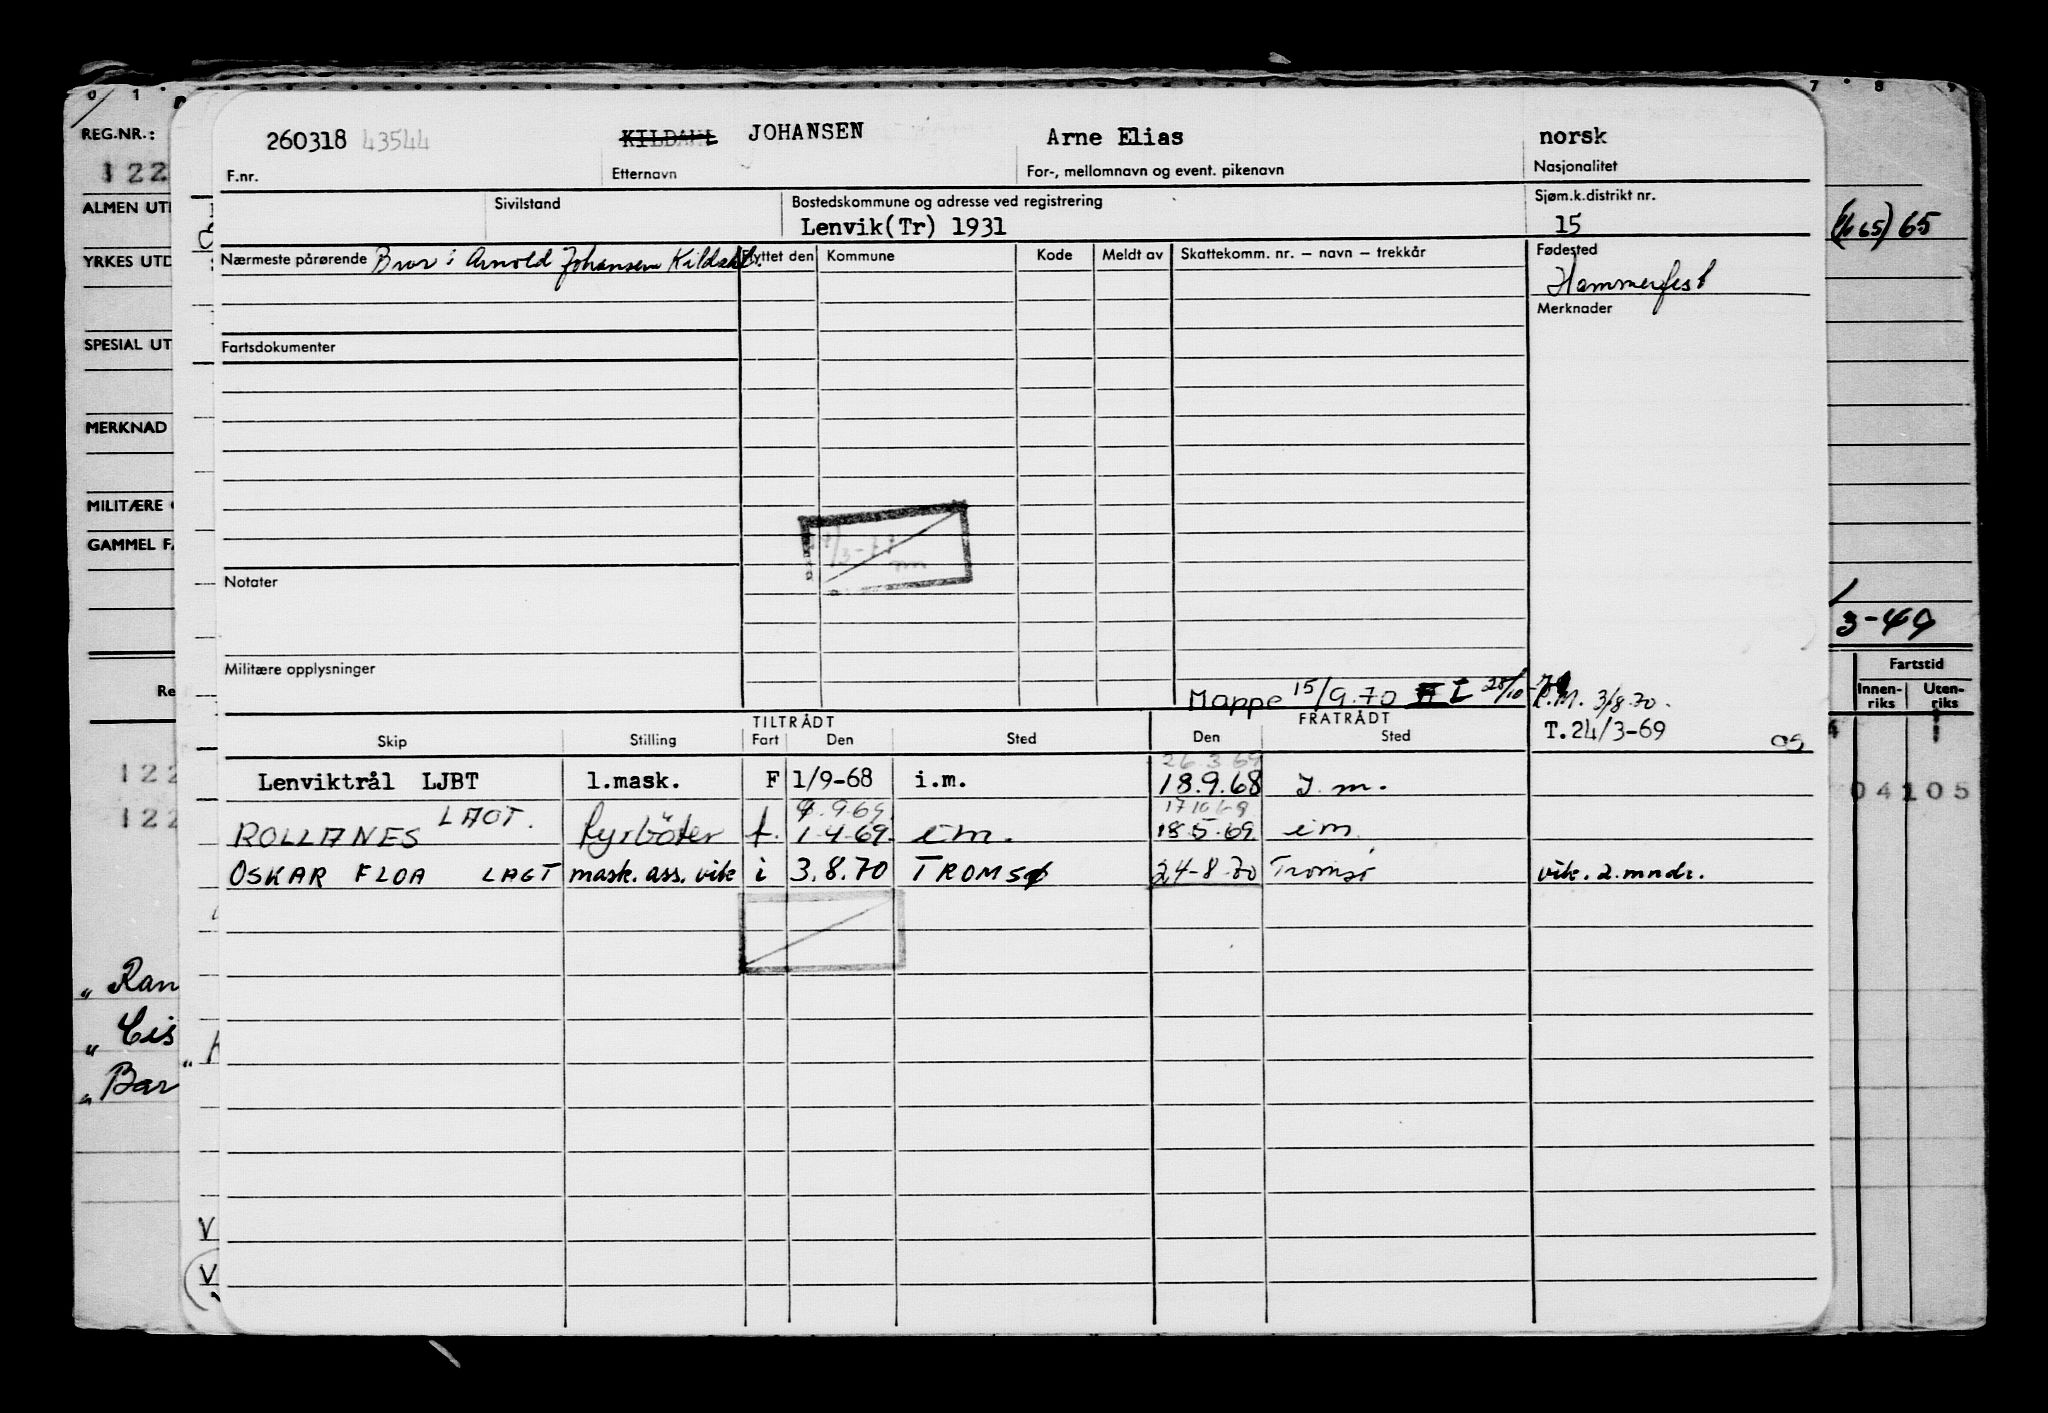 0 1 7 8 9
REG.NR.:
122
ALMEN UT
YRKES UTD
SPESIAL UT
MERKNAD
MILITÆRE
GAMMEL F
260318 43544 KILDAHL JOHANSEN Arne Elias norsk
F.nr. Etternavn For-, mellomnavn og event. pikenavn Nasjonalitet
Sivilstand Bostedskommune og adresse ved registrering Sjøm.k.distrikt nr.
Lenvik(Tr) 1931 15
65) 65
Nærmeste pårørende Bror: Arnold Johansen Kildahl. Flyttet den Kommune Kode Meldt av Skattekomm. nr. – navn – trekkår Fødested
Hammerfest
Merknader
Fartsdokumenter
Notater
3-49
Militære opplysninger
Fartstid
Innen-riks Uten-riks
Mappe 15/9.70 I 28/10 P.M. 3/8.70.
TILTRÅDT FRATRÅDT
Skip Stilling Fart Den Sted Den Sted T.24/3-69 05
26.3.69
Lenviktrål LJBT 1.mask. F 1/9-68 i.m. 18.9.68 I.m.
122 04105
9.69 17.10.69
ROLLANES LAOT. Fyrbøter f. 1.4.69. i m. 18.5.69 i m.
122
OSKAR FLOA LAGT mask. ass. vik i 3.8.70 TROMSØ 24-8-70 Tromsø vik. 2. mndr.
" Ran
" Cis
" Bar
V
V